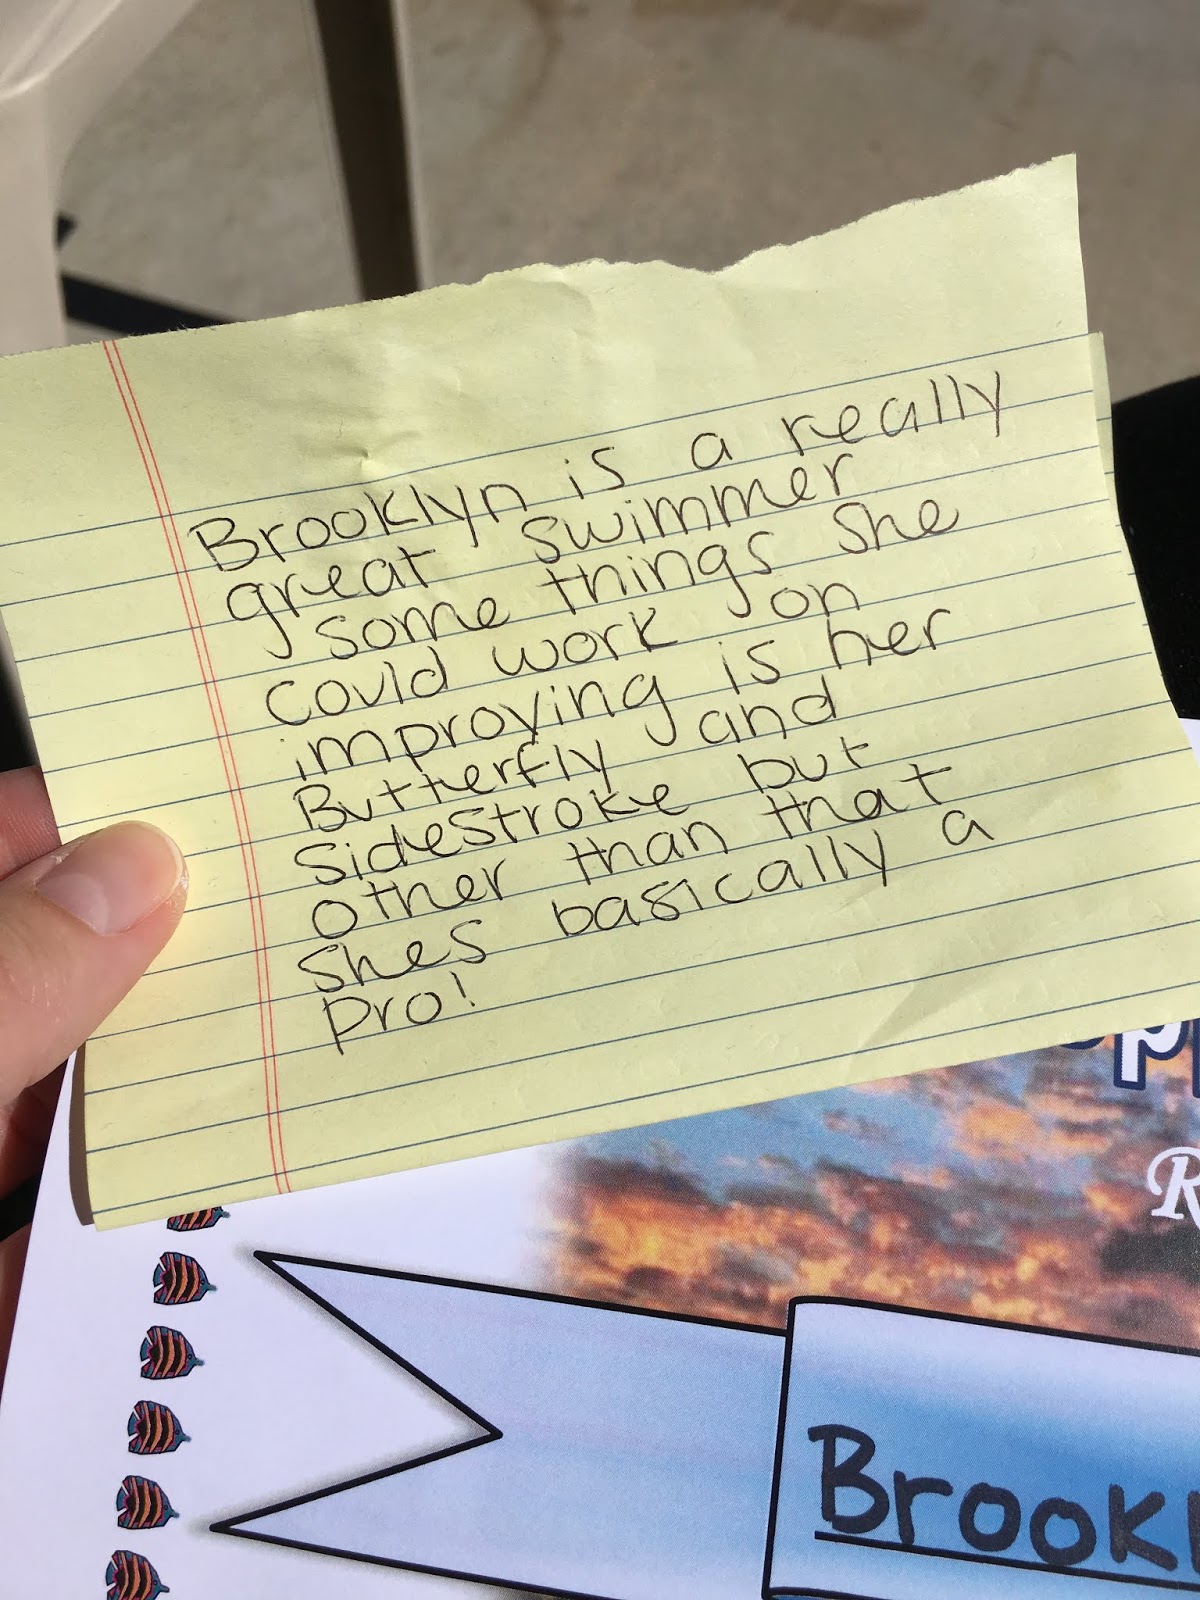 Brooklyn is a really
great swimmer
some things she
could work on
improving is her
Butterfly and
sidestroke but
other than that
shes basically a
pro!
R
Brook